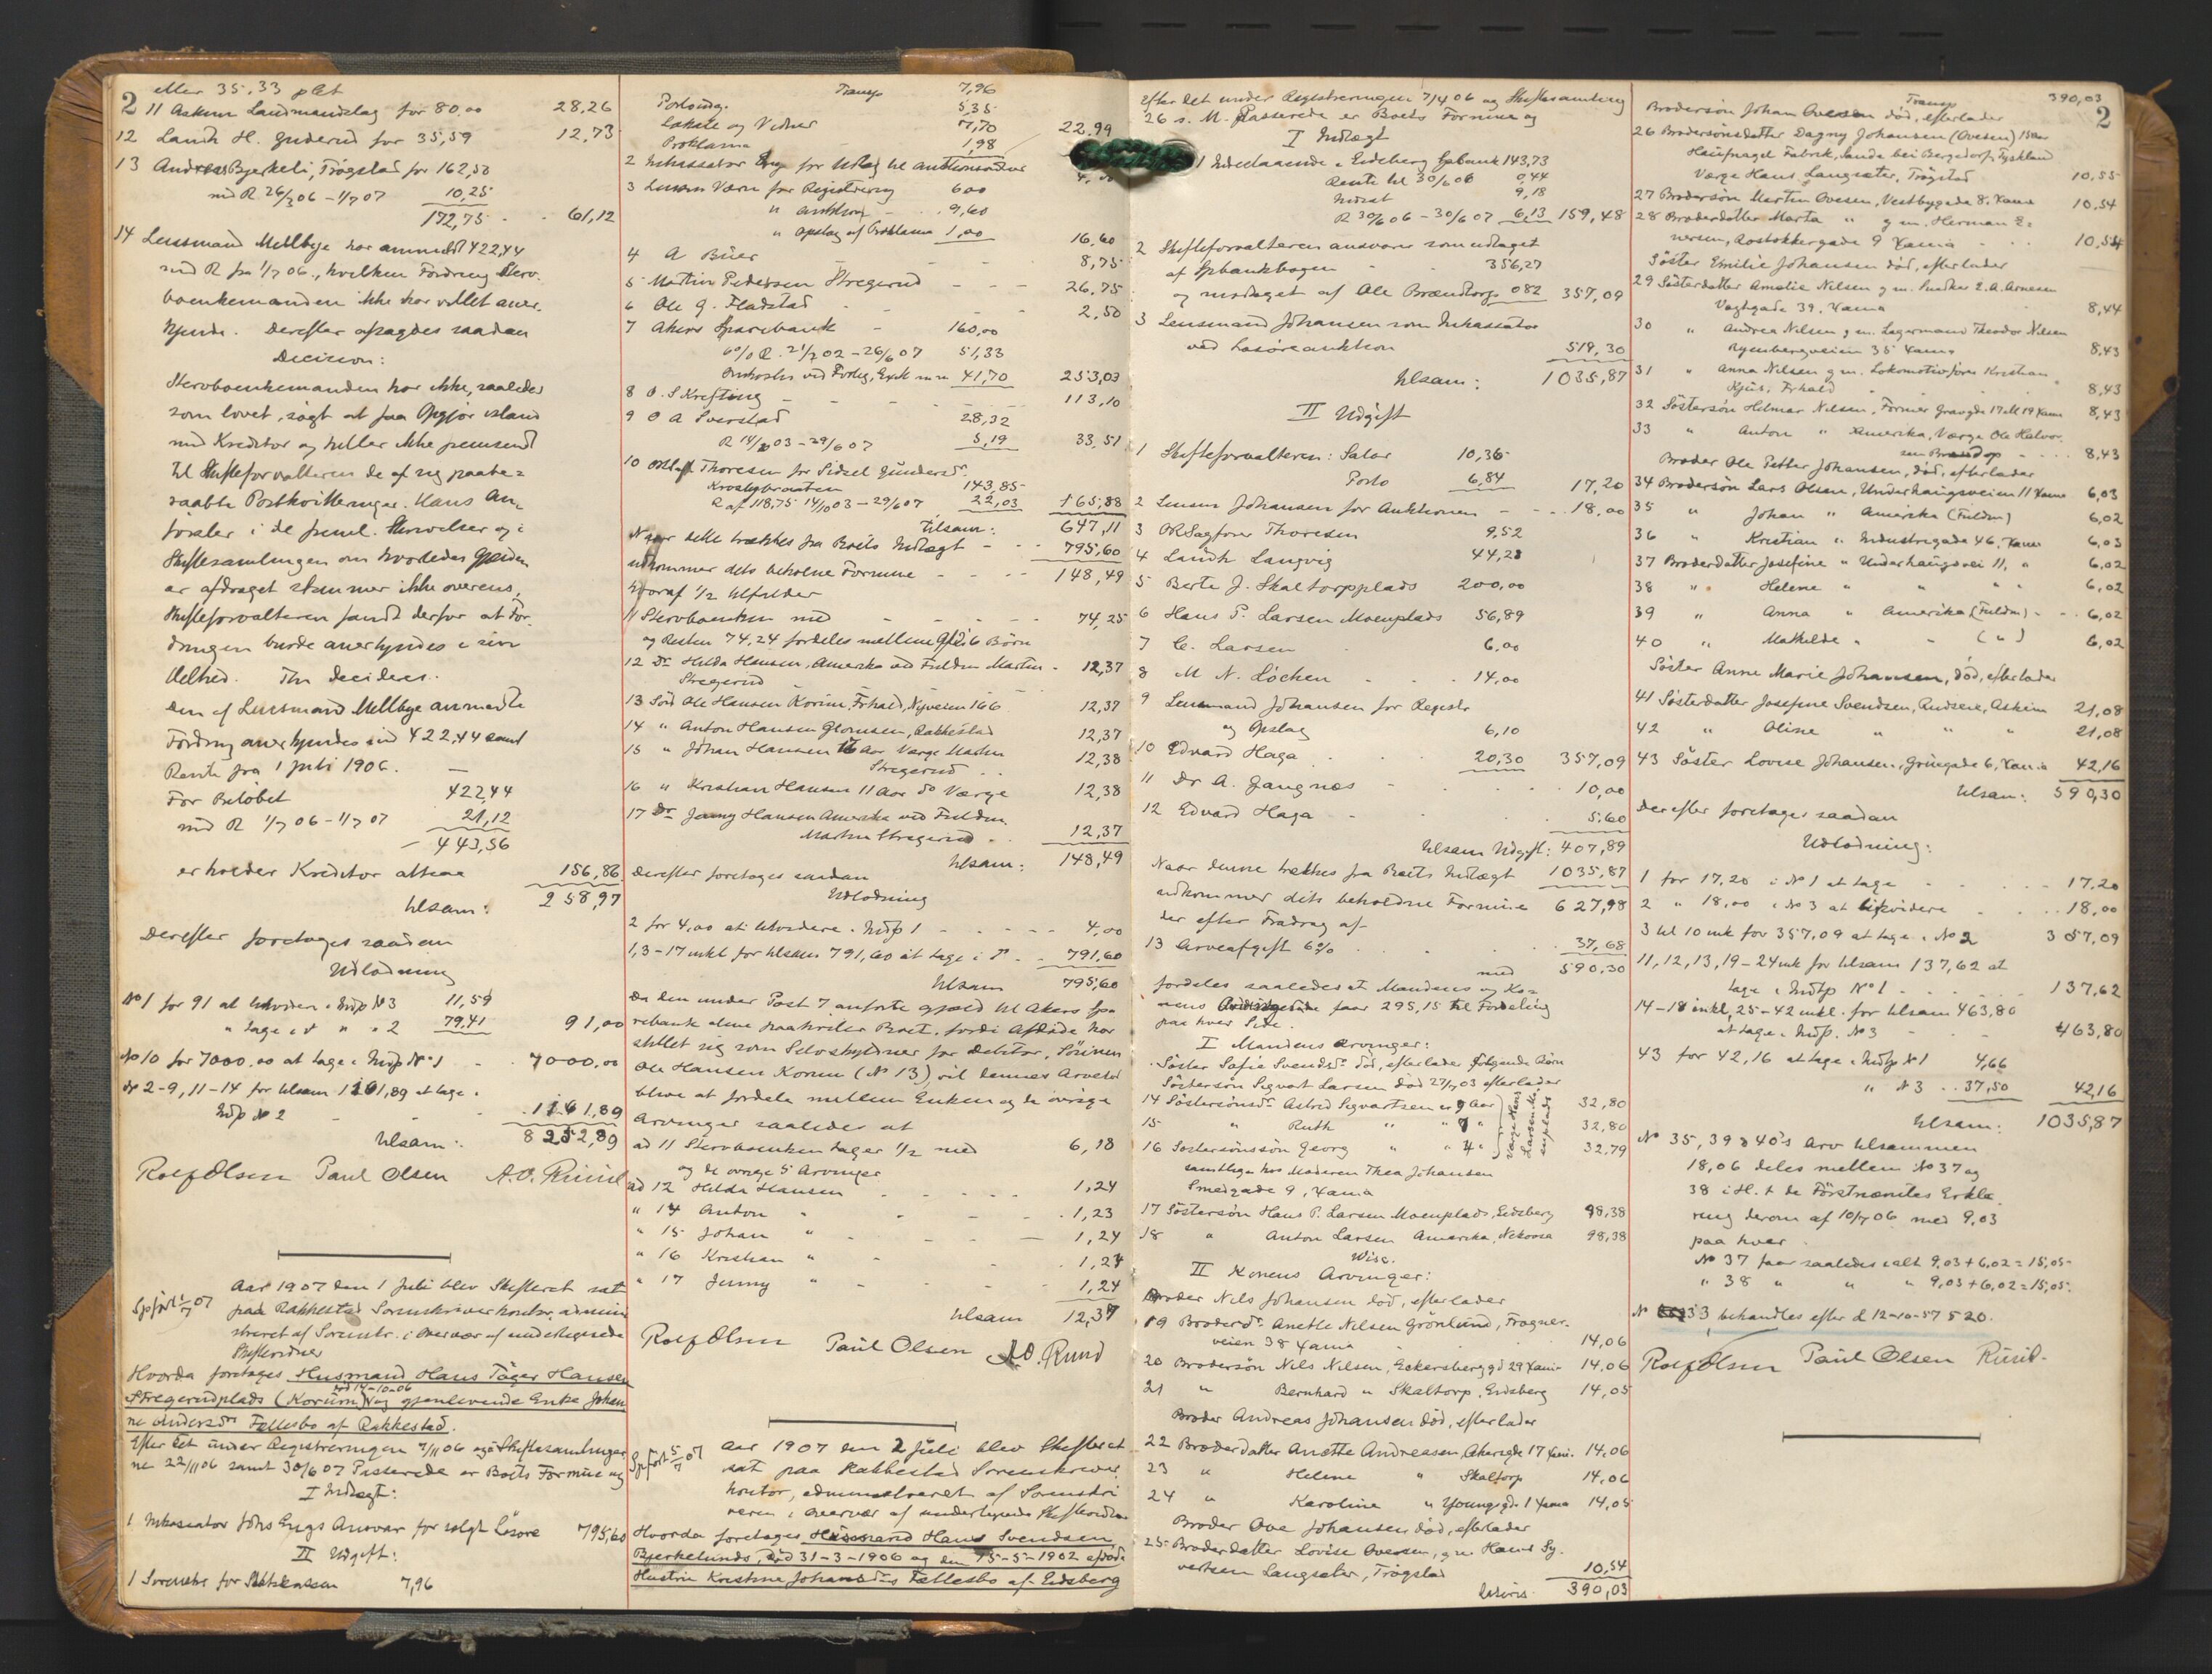 2
eller 35.33 pCt
11 Askim Landmandslag for 80,00 28,26
12 Landh H. Guderud for 35,59 12,73
13 Andreas Bjerkeli, Trøgstad for 162,50
med R 26/3 06 – 1/7 07 10,25
172,75 61,12
14 Lensmand Mellbye har anmeldt 422,44
med R fra 1/7 06., hvilken Fordring Sterv-
boenkemanden ikke har villet aner-
kjende. Derefter afsagdes saadan
Decision:
Stervboenkemanden har ikke, saaledes
som lovet, søgt at faa Opgjør istand
med Kreditor og heller ikke fremsendt
til Skifteforvalteren de af sig paabe=
raabte Postkvitteringer. Hans An-
førsler i de
Skiftesamlingen om hvorledes Gjælden
er afdraget stemmer ikke overens,
Skifteforvalteren fandt derfor at For-
dringen burde anerkjendes i sin
Helhed. Thi decideres:
Den af Lensmand Mellbye anmeldte
Fordring anerkjendes med 422,44 samt
Rente fra 1 Juli 1906. —
For Beløbet 422,44
med R 1/7 06 – 1/7 07 21,12
443,56
erholder Kreditor altsaa 156,86
tilsam: 258,97
Derefter foretages saadan
Udlodning
No 1 for 91 at likvidere i Indtp No 3 11,59
" tage i d " " 2 79,41 91,00
No 10 for 7000,00 at tage i Indtp No 1 7000,00
No 2-9, 11-14 for tilsam 1161,89 at tage i
Indtp No 2 1161,89
tilsam: 8252,89
Rolf Olsen Paul Olsen A.O. Ruud
Spfört 1/7 07
Aar 1907 den 1 Juli blev Skifteret sat
paa Rakkestad Sorenskriverkontor, admini
streret af Sorenskr. i Overvær af undertegnede
Skiftevidner
Hvorda foretoges Husmand Hans Tøger Hansen
død 14-10-06
Stregerudplads (Korum) og gjenlevende Enke Johan
ne Andersdrs Fællesbo af Rakkestad.
Efter det under Registreringen 7/11 06 og Skiftesamlinger
ne 22/11 06 samt 30/6 07 Passerede er Boets Formue og
I Indtægt:
1 Inkassator Johs Engs Ansvar for solgt Løsøre 795,60
II Udgift:
1 Sorenskr for 7,96
Transp 7,96
Portoudg. 5,35
Lokale og Vidner 7,70
Proklama 1,98 22,99
2 Inkassator Eng for Udlæg til Auktionsvidner 4,00
3 Lensm Værn for Registrering 6,00
" Auktion 9,60
" Opslag af Proklama 1,00 16,60
4 A Buer 8,75
5 Martin Pedersen Stregerud 26,75
6 Ole G. Fladstad 2,50
7 Akers Sparebank 160,00
6% R. 21/2 02 – 26/6 07 51,33
Omkostn ved Forlig, Exek m.m 41,70 253,03
8 O. S Krefting 113,10
9 O A Sverstad 28,32
R 14/10 03 – 29/6 07 5,19 33,51
10 Thoresen for Sidsel Gundersdr
Krosbybraaten 143,85
R af 118,75 14/10 03 – 29/6 07 22,03 165,88
tilsam: 647,11
Naar dette trækkes fra Boets Indtægt 795,60
udkommer dets beholdne Formue 148,49
hvoraf 1/2 tilfalder
11 Stervboenken med 74,25
og Resten 74,24 fordeles mellem Afdødes 6 Børn
12 Dr Hilda Hansen, Amerika ved Fuldm Martin 12,37
Stregerud
13 Søn Ole Hansen Korum, Frhald, Nyveien 166 12,37
14 " Anton Hansen Glomsen, Rakkestad 12,37
15 " Johan Hansen 16 aar Værge Martin
Stregerud 12,38
16 " Kristian Hansen 11 Aar do Værge 12,38
17 Dr Jenny Hansen Amerika ved Fuldm.
Martin Stregerud 12,37
tilsam: 148,49
Derefter foretages saadan
Udlodning
2 for 4,00 at likvidere i Indtp 1 4,00
1, 3-17 inkl for tilsam 791,60 at tage i do 791,60
tilsam 795,60
Da den under Post 7 anførte Gjæld til Akers Spa
rebank alene paahviler Boet, fordi Afdøde har
stillet sig som Selvskyldner for Debitor, Sønnen
Ole Hansen Korum (No 13), vil dennes Arvelod
blive at fordele mellem Enken og de øvrige
Arvinger saaledes at
ad 11 Stervboenken tager 1/2 med 6,18
og de øvrige 5 Arvinger
ad 12 Hilda Hansen 1,24
" 14 Anton " 1,23
" 15 Johan " 1,24
" 16 Kristian " 1,24
" 17 Jenny " 1,24
tilsam 12,37
Rolf Olsen Paul Olsen A.O. Ruud
Spfört 5/7 07
Aar 1907 den 2 Juli blev Skifteret
sat paa Rakkestad Sorenskriver
kontor, administreret af Sorenskri
veren i Overvær af undertegnede Skiftevidner
Hvorda foretoges Husmand Hans Svendsen
Bjerkelunds, død 31-3-1906 og den 15-5-1902 afdøde
Hustru Kristine Johansdrs Fællesbo af Eidsberg
Efter det under Registreringen 7/4 06 og Skiftesamling
26 s. M. Passerede er Boets Formue og
I Indtægt
1 Indestaaende i Eidsberg Spbank 143,73
Rente til 30/6 06 0,44
Indsat 9,18
R 30/6 06 – 30/6 07 6,13 159,48
2 Skifteforvalteren ansvarer som udtaget
af Spbankbogen 356,27
og modtaget af Ole Brændtorp 0,82 357,09
3 Lensmand Johansen som Inkassator
ved Løsøreauktion 519,30
tilsam: 1035,87
II Udgift
1 Skifteforvalteren: Salær 10,36
Porto 6,84 17,20
2 Lensm Johansen for Auktionen 18,00
3 ORSagfører Thoresen 9,52
4 Landh Langvig 44,28
5 Berte J. Skaltorpplads 200,00
6 Hans P. Larsen Moenplads 56,89
7 C. Larsen 6,00
8 M N. Løchen 14,00
9 Lensmand Johansen for Registr
og Opslag 6,10
10 Edvard Haga 20,30 357,09
11 Dr A. Jangnæs 10,00
12 Edvard Haga 5,60
tilsam Udgift: 407,89
Naar denne trækkes fra Boets Indtægt 1035,87
udkommer dets beholdne Formue 627,98
der efter Fradrag af
13 Arveafgift 6% 37,68
med 590,30
fordeles saaledes at Mandens og Ko-
nens Arvinger faar 295,15 til Fordeling
paa hver Side.
I Mandens Arvinger:
Søster Sofie Svendsdr død, efterlader følgende Børn
Søstersøn Sigvart Larsen død 27/7 03 efterlader
14 Søstersønsdr Astrid Sigvartsen er 9 Aar 32,80
15 " Ruth " " 7 " 32,80
16 Søstersønssøn Georg " " 4 " 32,79
Værge Hans Larsen Moenplads
samtlige hos Moderen Thea Johansen
Smedgade 9, Xania
17 Søstersøn Hans P. Larsen Moenplads, Eidsberg 98,38
18 " Anton Larsen Amerika, Nekoosa 98,38
Wisc.
II Konens Arvinger:
Broder Nils Johansen død, efterlader
19 Broderdr Anette Nilsen Grønlund, Frogner-
veien 38 Xania 14,06
20 Brodersøn Nils Nilsen, Eckersberggd 29 Xania 14,06
21 " Bernhard " Skaltorp, Eidsberg 14,05
Broder Andreas Johansen død, efterlader
22 Broderdatter Anette Andreasen, Akersgde 17 Xani. 14,06
23 " Helene " Skaltorp 14,06
24 " Karoline " Youngsgd. 1 Xania 14,05
Broder Ove Johansen død, efterlader
25 Broderdatter Lovise Ovesen, gm Hans Sy.
vertsen Langsæter, Trøgstad 10,54
390,03
Transp 390,03
2
Brodersøn Johan Ovesen død, efterlader
26 Brodersønsdatter Dagny Johansen (Ovesen) 15 aar
Haufnagel Fabrik, Sande bei Bergedorf, Tyskland
Værge Hans Langsæter, Trøgstad 10,55
27 Brodersøn Martin Ovesen, Vestbygade 8. Xania 10,54
28 Broderdatter Marta " gm. Herman E=
nersen, Rostokkergade 9 Xania 10,54
Søster Emilie Johansen død, efterlader
29 Søsterdatter Amalie Nilsen gm. Snedker E. A. Arnesen
Vagtgade 39, Xania 8,44
30 " Andrea Nilsen gm. Lagermand Theodor Nilsen
Ryenbergveien 35 Xania 8,43
31 " Anna Nilsen gm. Lokomotivfører Kristian
Kjus, Frhald 8,43
32 Søstersøn Hilmar Nilsen, Former 8,43
33 " Anton " Amerika, Værge Ole Halvor-
sen 8,43
Broder Ole Petter Johansen, død, efterlader
34 Brodersøn Lars Olsen, Underhaugsveien 11 Xania 6,03
35 " Johan " Amerika (Fuldm) 6,02
36 " Kristian " Industrigade 46, Xania 6,03
37 Broderdatter Josefine " Underhaugsvei 11, " 6,02
38 " Helene " " " " 6,02
39 " Anna " Amerika (Fuldm) 6,02
40 " Mathilde " - ( " ) 6,02
Søster Anne Marie Johansen, død, efterlader
41 Søsterdatter Josefine Svendsen, Askim 21,08
42 " Oline " " " 21,08
43 Søster Lovise Johansen, Grüngade 6, Xania 42,16
tilsam: 590,30
Derefter foretages saadan
Udlodning:
1 for 17,20 i No 1 at tage 17,20
2 " 18,00 i No 3 at likvidere 18,00
3 til 10 ink for 357,09 at tage i No 2 357,09
11, 12, 13, 19–24 ink for tilsam 137,62 at
tage i Indtp No 1 137,62
14–18 inkl, 25–42 inkl. for tilsam 463,80
at tage i Indtp. No 3 463,80
43 for 42,16 at tage i Indtp No 1 4,66
" No 3 37,50 42,16
tilsam: 1035,87
No 35, 39 & 40's Arv tilsammen
18,06 deles mellem No 37 og
38 i H. t de Førstnævntes Erklæ
ring derom af 10/7 06 med 9,03
paa hver
No 37 faar saaledes ialt 9,03 + 6,02 = 15,05
" 38 " " " 9,03 + 6,02 = 15,05
No 33 behandles efter L 12-10-57 § 20.
Rolf Olsen Paul Olsen Ruud.